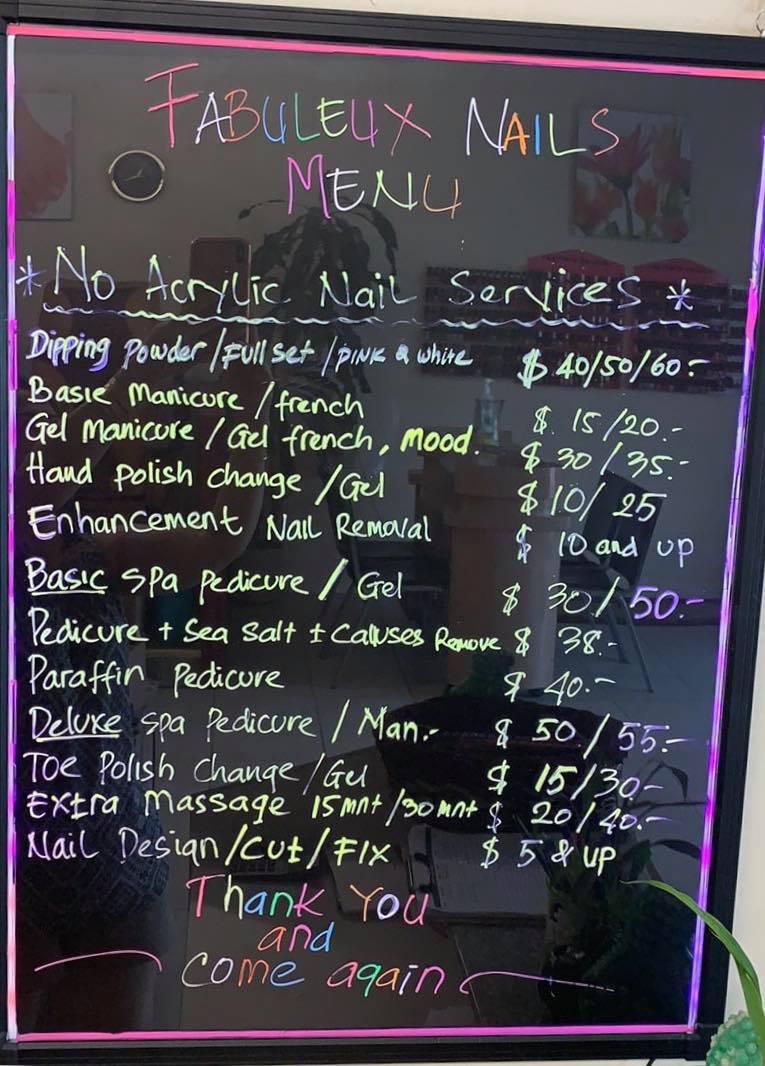 FABULEUX NAILS
MENU
* No Acrylic Nail Services *
Dipping Powder/Full set/PINK & white $ 40/50/60.-
Basic Manicure/french $. 15/20.-
Gel Manicure/Gel french, mood. $ 30/35.-
Hand polish change/Gel $10/25
Enhancement Nail Removal $ 10 and up
Basic Spa Pedicure/Gel $ 30/50.-
Pedicure + Sea Salt ± Calluses Remove $ 38.-
Paraffin Pedicure $ 40.-
Deluxe Spa Pedicure/Man.- $ 50/55.-
TOE Polish Change/Gel $ 15/30-
Extra Massage 15mnt/30mnt $ 20/40.-
Nail Design/Cut/Fix $ 5 & up
Thank You
and
come again